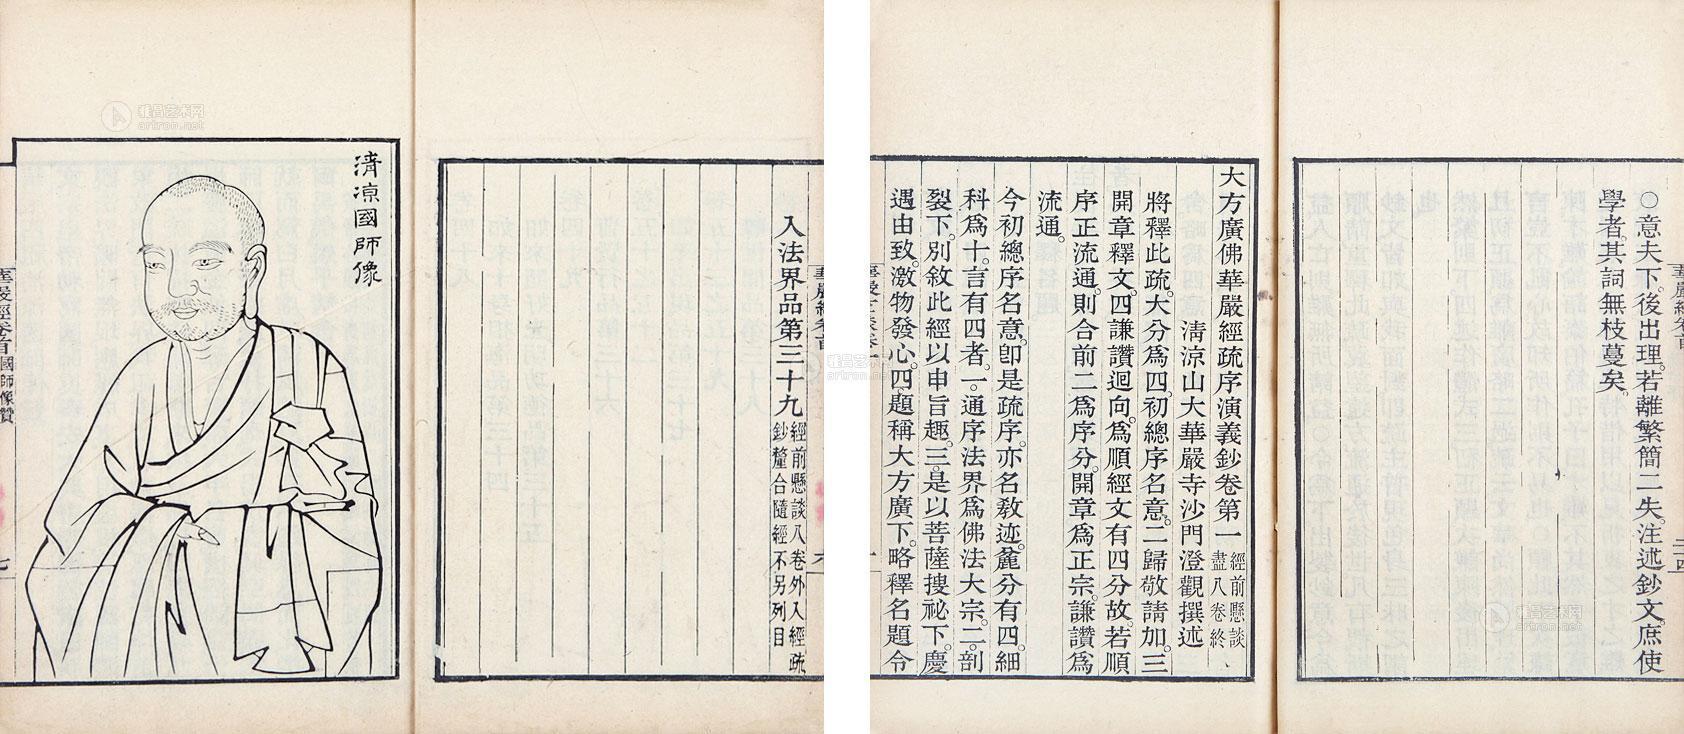 ○意夫下。後出理。若離繁簡二失。注述鈔文。庶使
學者。其詞無枝蔓矣。
大方廣佛華嚴經疏序演義鈔卷第一 經前懸談
盡八卷終
清涼山大華嚴寺沙門澄觀撰述
將釋此疏。大分爲四。初總序名意。二歸敬請加。三
開章釋文。四謙讚迴向。爲順經文有四分故。若順
序正流通。則合前二爲序分。開章爲正宗。謙讚爲
流通。
今初總序名意。卽是疏序。亦名教迹。麄分有四。細
科爲十。言有四者。一通序法界爲佛法大宗。二剖
裂下。別敘此經以申旨趣。三是以菩薩搜祕下。慶
遇由致。激物發心。四題稱大方廣下。略釋名題令
入法界品第三十九 經前懸談八卷外入經疏
鈔釐合隨經不另列目
清涼國師像
華嚴經卷首 國師像贊
七
雅昌艺术网
artron.net